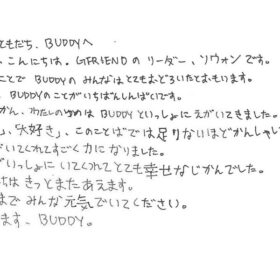 ともだち、BUDDYへ
、こんにちは。GFRIENDの リーダー、ソウォンです。
ことで BUDDYの みんなは とても おどろいたとおもいます。
BUDDYのことが いちばん しんぱいです。
かん、わたしの ゆめは BUDDYと いっしょに えがいてきました。
「大好き」、このことばでは 足りないほど かんしゃし
いてくれて すごく 力に なりました。
いっしょに いてくれて とても 幸せな じかんでした。
ちは きっと また あえます。
まで みんな 元気で いてください。
ます、BUDDY。